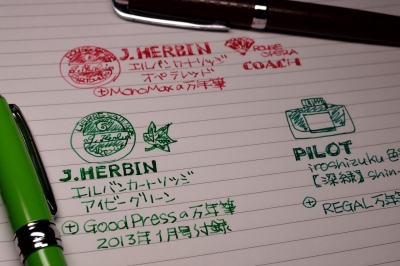 J. HERBIN
エルバンカートリッジ
オペラレッド
⊕MonoMaxの万年筆
ROUGE OPERA
COACH
J. HERBIN
エルバンカートリッジ
アイビーグリーン
⊕ GoodPressの万年筆
2013年1月号付録
PILOT
iroshizuku 色
【深緑】shin-
⊕ REGAL万年